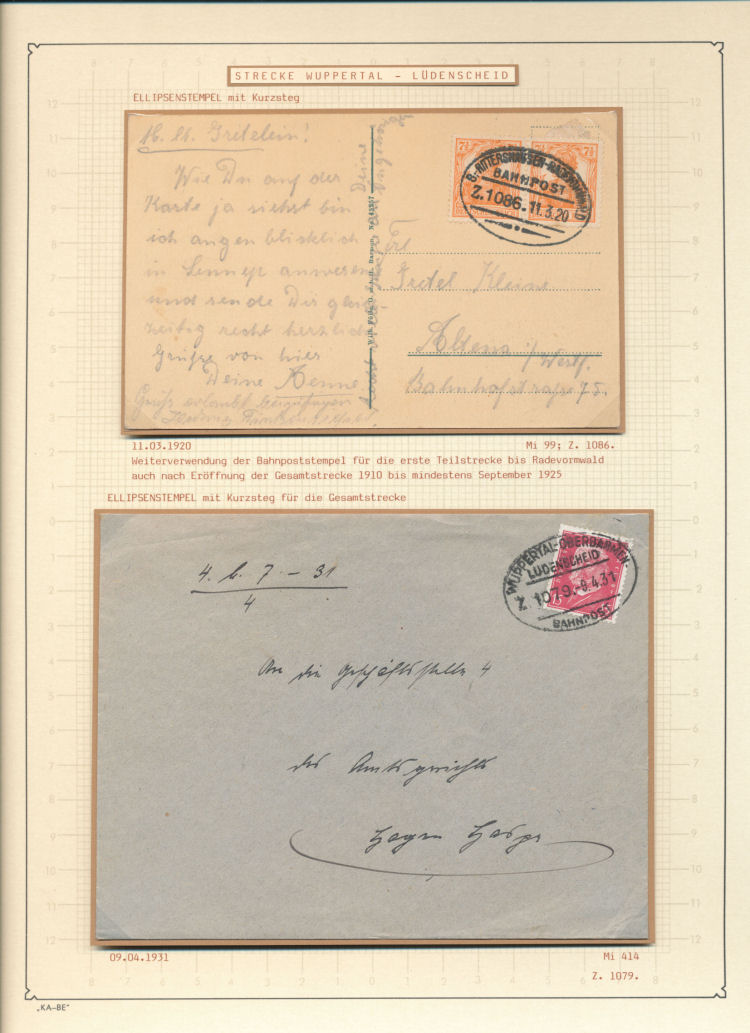 STRECKE WUPPERTAL - LÜDENSCHEID
ELLIPSENSTEMPEL mit Kurzsteg
M. lb. Gretelein!
Wie Du auf der
Karte ja siehst bin
ich augenblicklich
in Lennep anwesen
und sende Dir gleich-
zeitig recht herzliche
Grüße von hier
Deine Aenne
Gruß erlaubt
7½ 7½
B.-RITTERSHAUSEN-RADEVORMWALD
BAHNPOST
Z.1086. 11.3.20
Frl
Gretel Kleine
Altena i/Westf.
Bahnhofstraße 75.
11.03.1920
Mi 99; Z. 1086.
Weiterverwendung der Bahnpoststempel für die erste Teilstrecke bis Radevormwald
auch nach Eröffnung der Gesamtstrecke 1910 bis mindestens September 1925
ELLIPSENSTEMPEL mit Kurzsteg für die Gesamtstrecke
4. b. 7. - 31
4
WUPPERTAL-OBERBARMEN-
LÜDENSCHEID
Z. 1079. -9.4.31
BAHNPOST
An die Geschäftsstelle 4
des Amtsgerichts
Hagen Haspe
09.04.1931
Mi 414
Z. 1079.
„KA-BE"